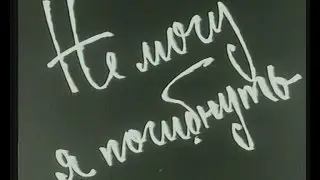 Не могу
я погибнуть